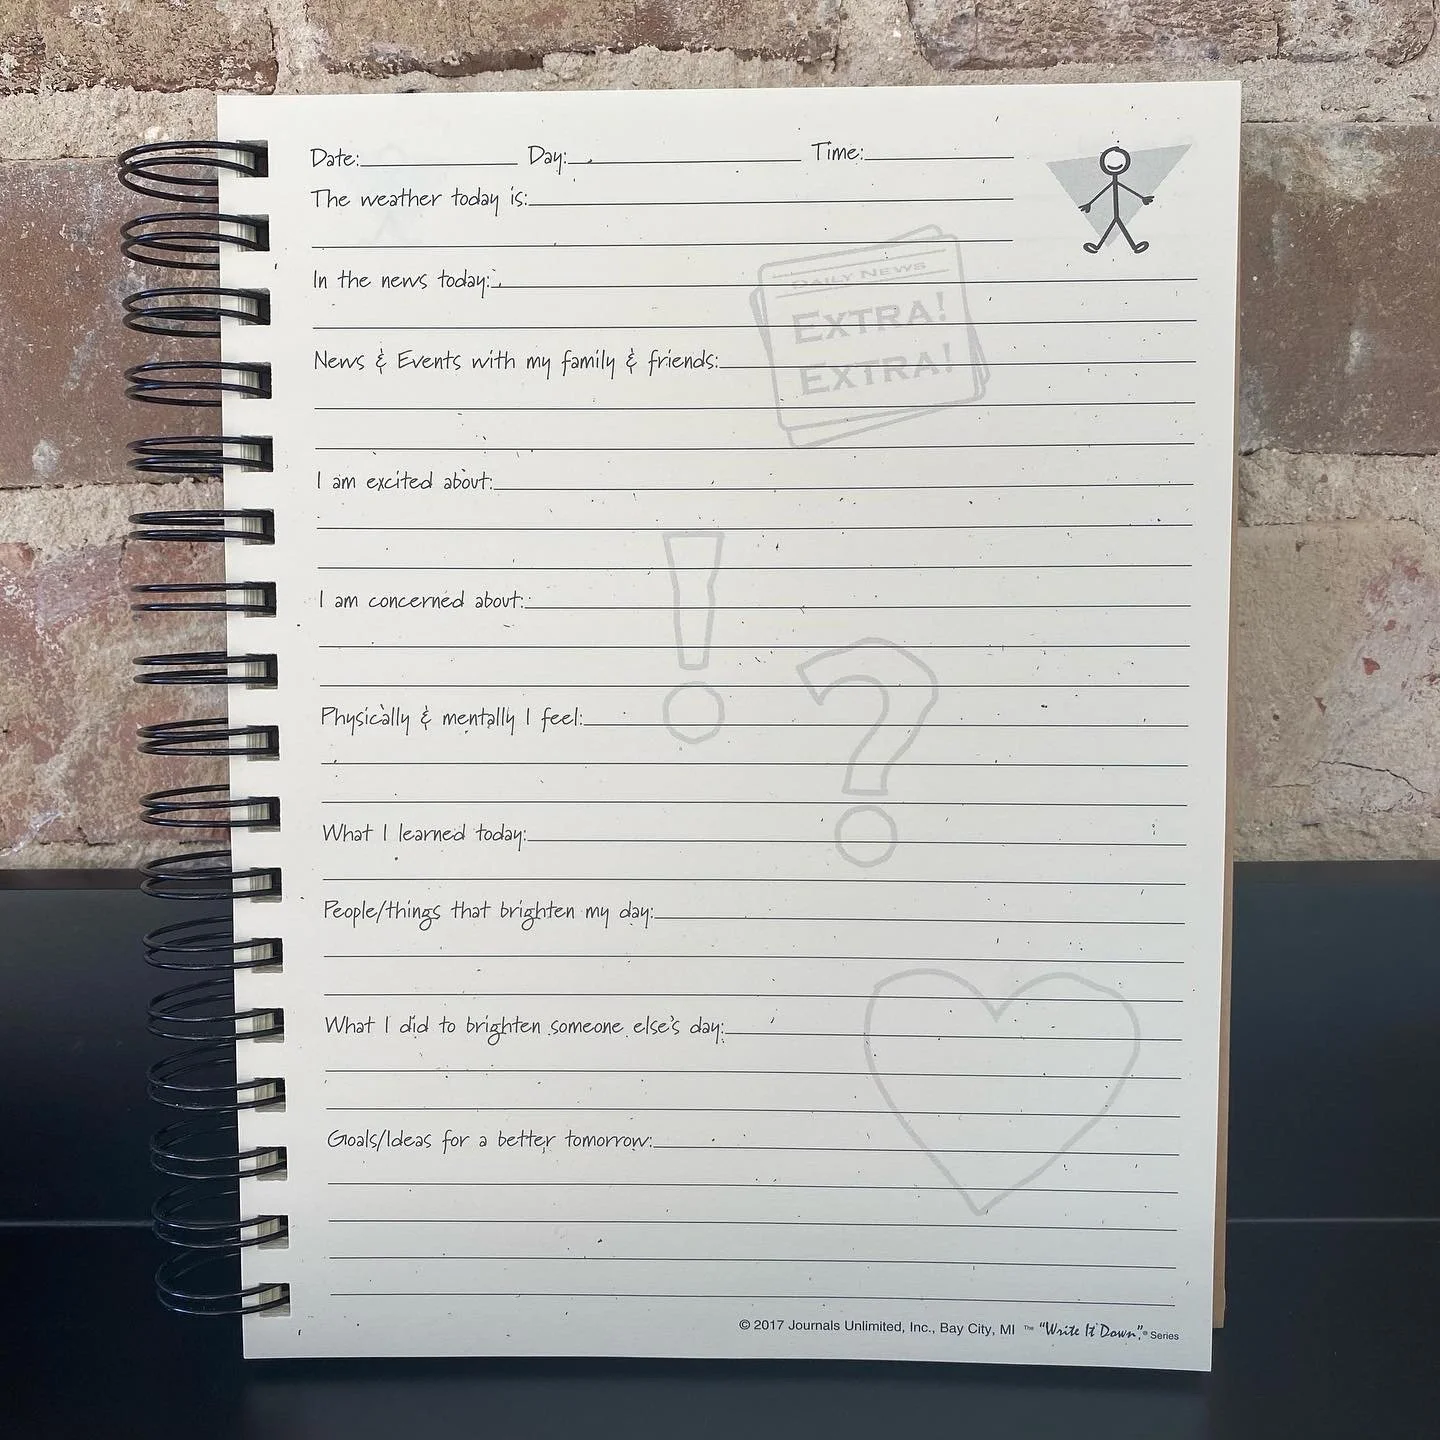 Date: Day: Time:
The weather today is:
In the news today:
DAILY NEWS
EXTRA!
EXTRA!
News & Events with my family & friends:
I am excited about:
I am concerned about:
Physically & mentally I feel:
What I learned today:
People/things that brighten my day:
What I did to brighten someone else's day:
Goals/Ideas for a better tomorrow:
© 2017 Journals Unlimited, Inc., Bay City, MI The "Write It Down".® Series